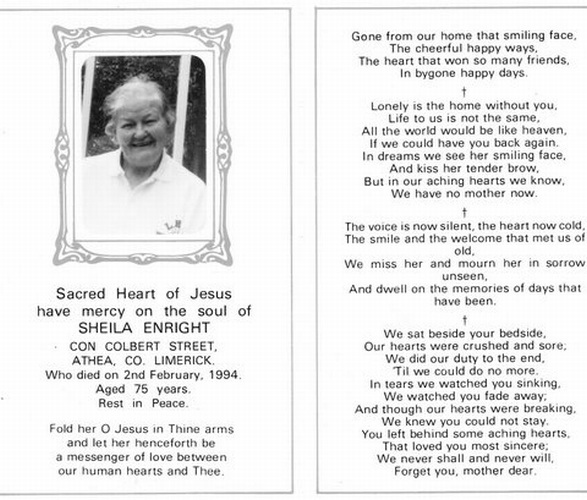 Sacred Heart of Jesus
have mercy on the soul of
SHEILA ENRIGHT
CON COLBERT STREET,
ATHEA, CO. LIMERICK.
Who died on 2nd February, 1994.
Aged 75 years.
Rest in Peace.
Fold her O Jesus in Thine arms
and let her henceforth be
a messenger of love between
our human hearts and Thee.
Gone from our home that smiling face,
The cheerful happy ways,
The heart that won so many friends,
In bygone happy days.
†
Lonely is the home without you,
Life to us is not the same,
All the world would be like heaven,
If we could have you back again.
In dreams we see her smiling face,
And kiss her tender brow,
But in our aching hearts we know,
We have no mother now.
†
The voice is now silent, the heart now cold,
The smile and the welcome that met us of
old,
We miss her and mourn her in sorrow
unseen,
And dwell on the memories of days that
have been.
†
We sat beside your bedside,
Our hearts were crushed and sore;
We did our duty to the end,
'Til we could do no more.
In tears we watched you sinking,
We watched you fade away;
And though our hearts were breaking,
We knew you could not stay.
You left behind some aching hearts,
That loved you most sincere;
We never shall and never will,
Forget you, mother dear.